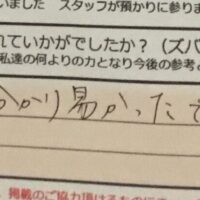 いました　スタッフが預かりに参りま
れていかがでしたか？（ズバ
私達の何よりの力となり今後の参考と
かり易かったで
掲載のご協力頂けるものに